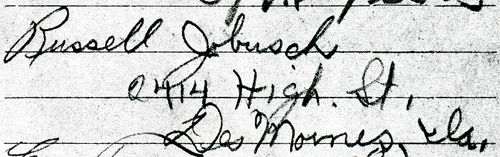 Russell Jobusch
2414 High. St.
Des Moines, Ia.